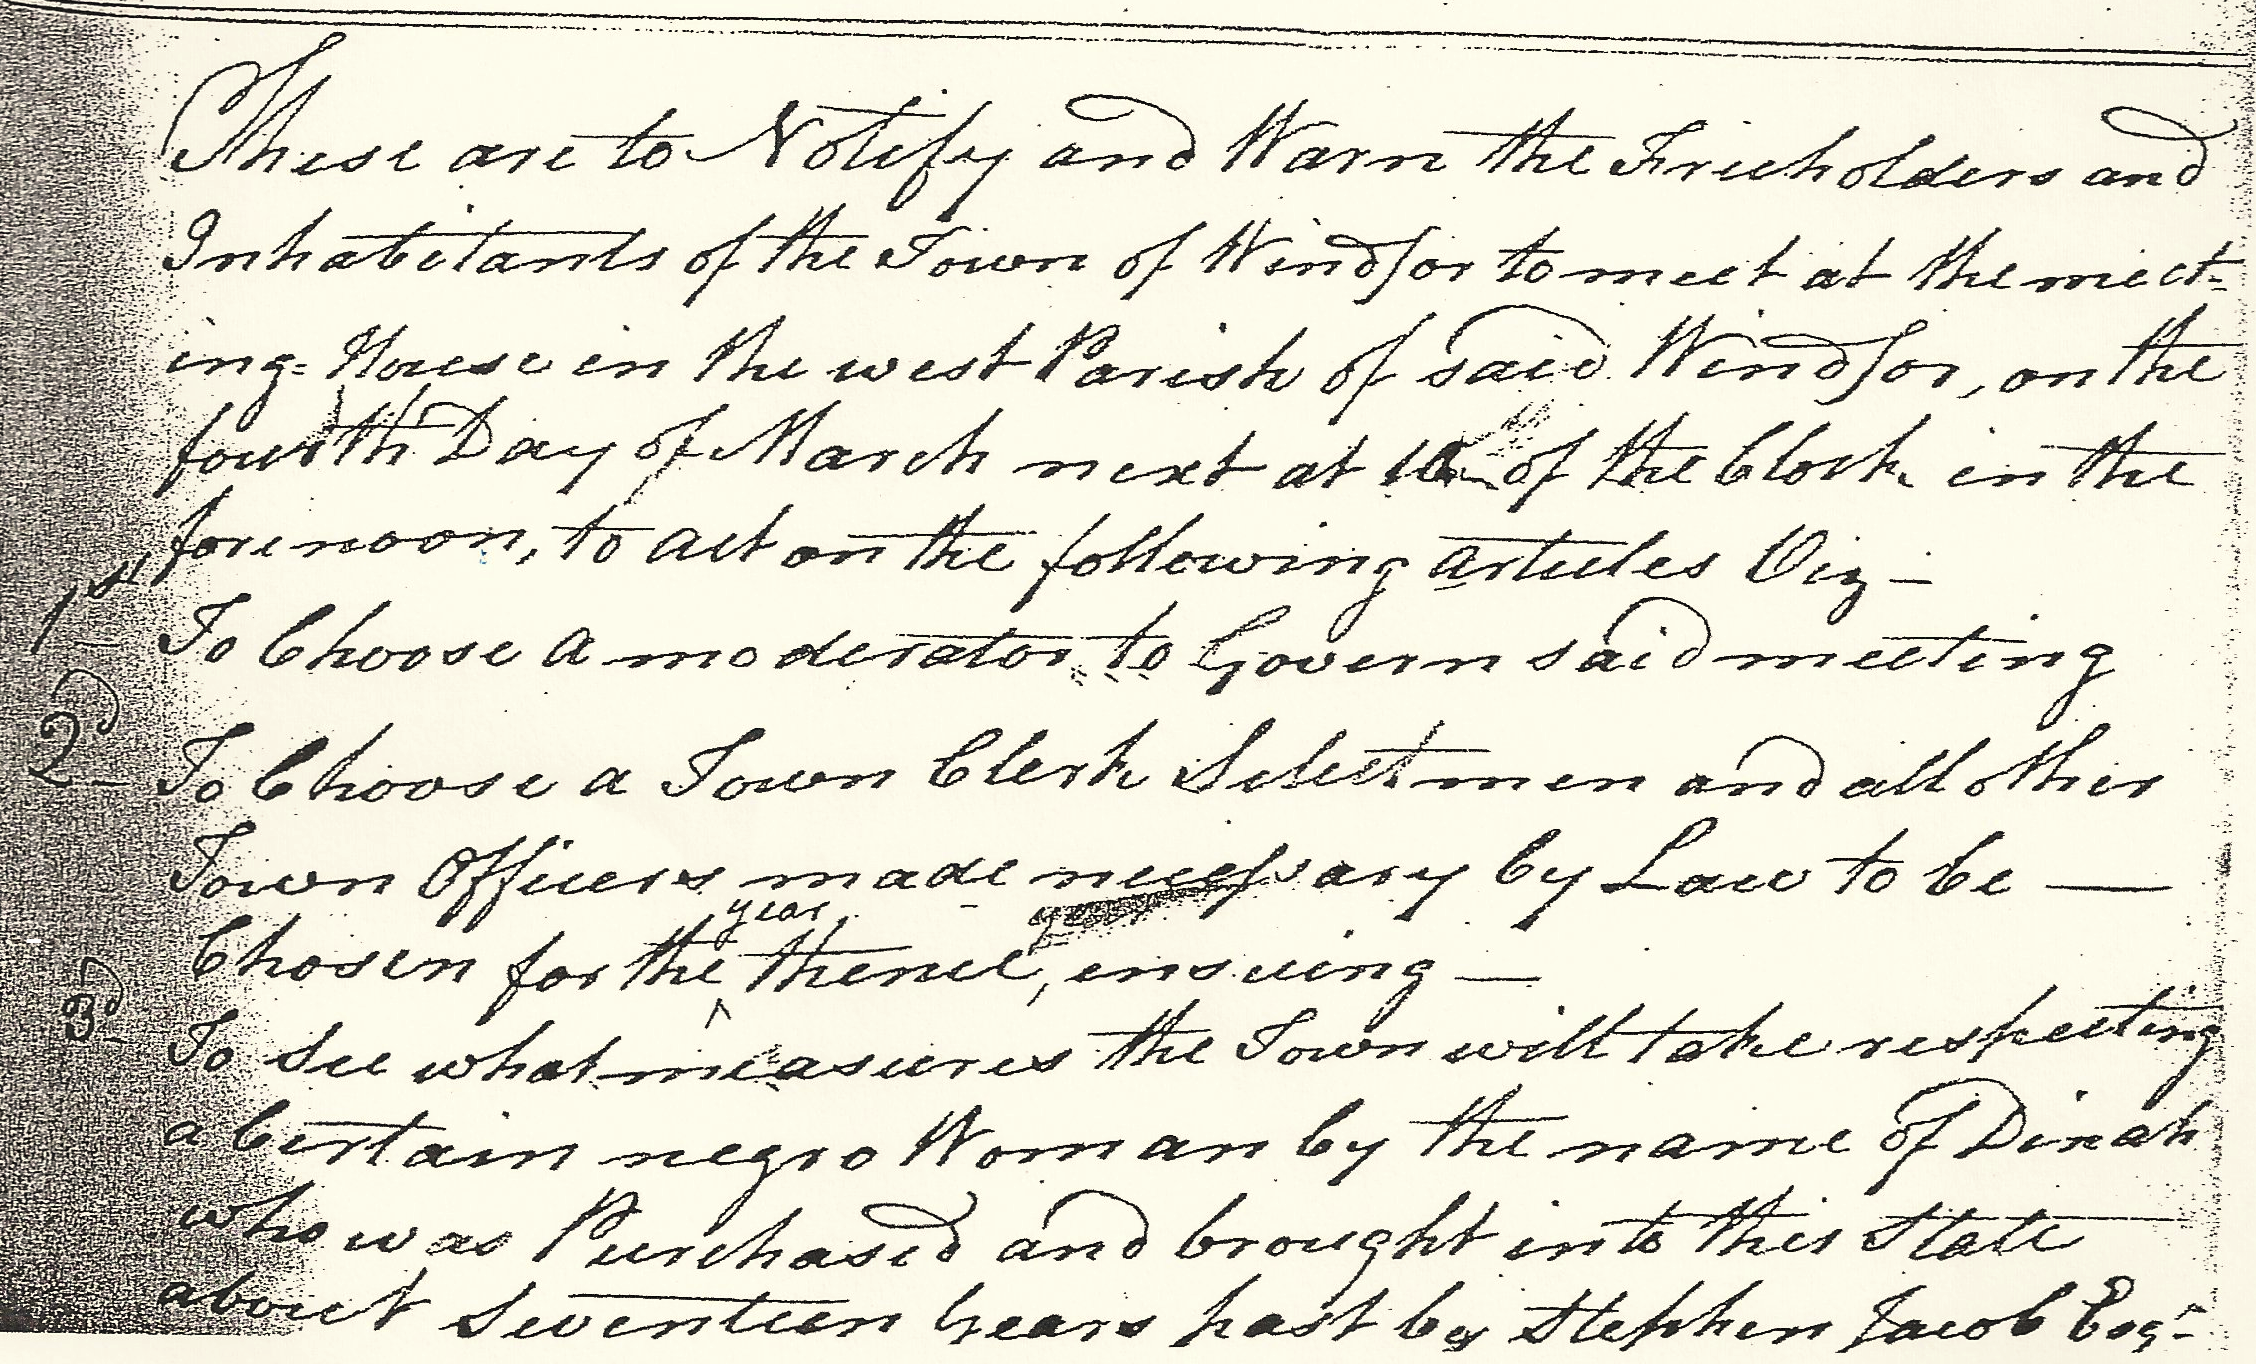 These are to Notify and Warn the Freeholders and
Inhabitants of the Town of Windsor to meet at the meet-
ing-House in the west Parish of said Windsor, on the
fourth Day of March next at 10 of the Clock in the
forenoon, to act on the following articles Viz —
1st To Choose a moderator to Govern said meeting
2d To Choose a Town Clerk Selectmen and all other
Town Officers made necessary by Law to be —
year
Chosen for the ^ thence, ensuing —
3d To See what measures the Town will take respecting
a Certain negro Woman by the name of Dinah
who was Purchased and brought into this State
about Seventeen Years past by Stephen Jacob Esqr-